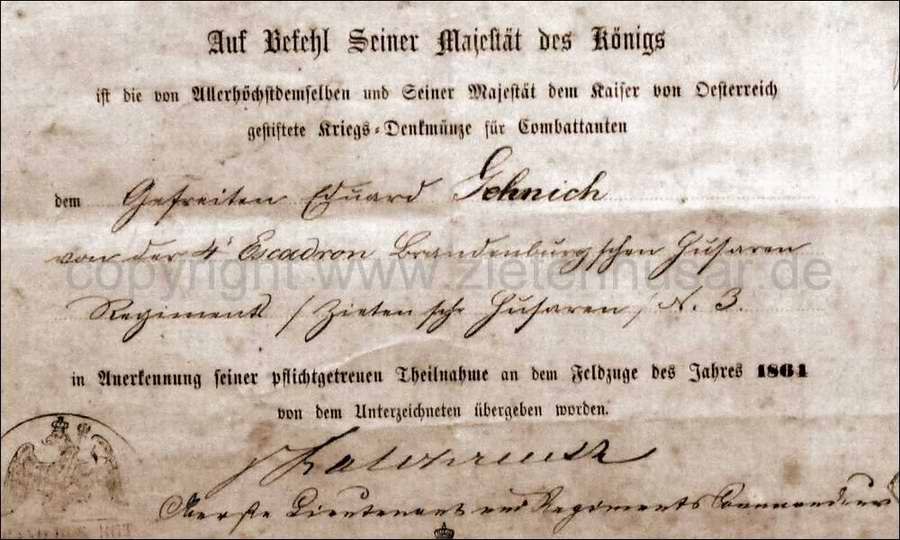 Auf Befehl Seiner Majestät des Königs
ist die von Allerhöchstdemselben und Seiner Majestät dem Kaiser von Oesterreich
gestiftete Kriegs-Denkmünze für Combattanten
dem Gefreiten Eduard Gehnich
von der 4t Escadron Brandenburg'schen Husaren
copyright www.zietenhusar.de
Regiments /Zieten'sche Husaren/ N. 3.
in Anerkennung seiner pflichtgetreuen Theilnahme an dem Feldzuge des Jahres 1864
von dem Unterzeichneten übergeben worden.
Lieutenant und Regiments Commandeur